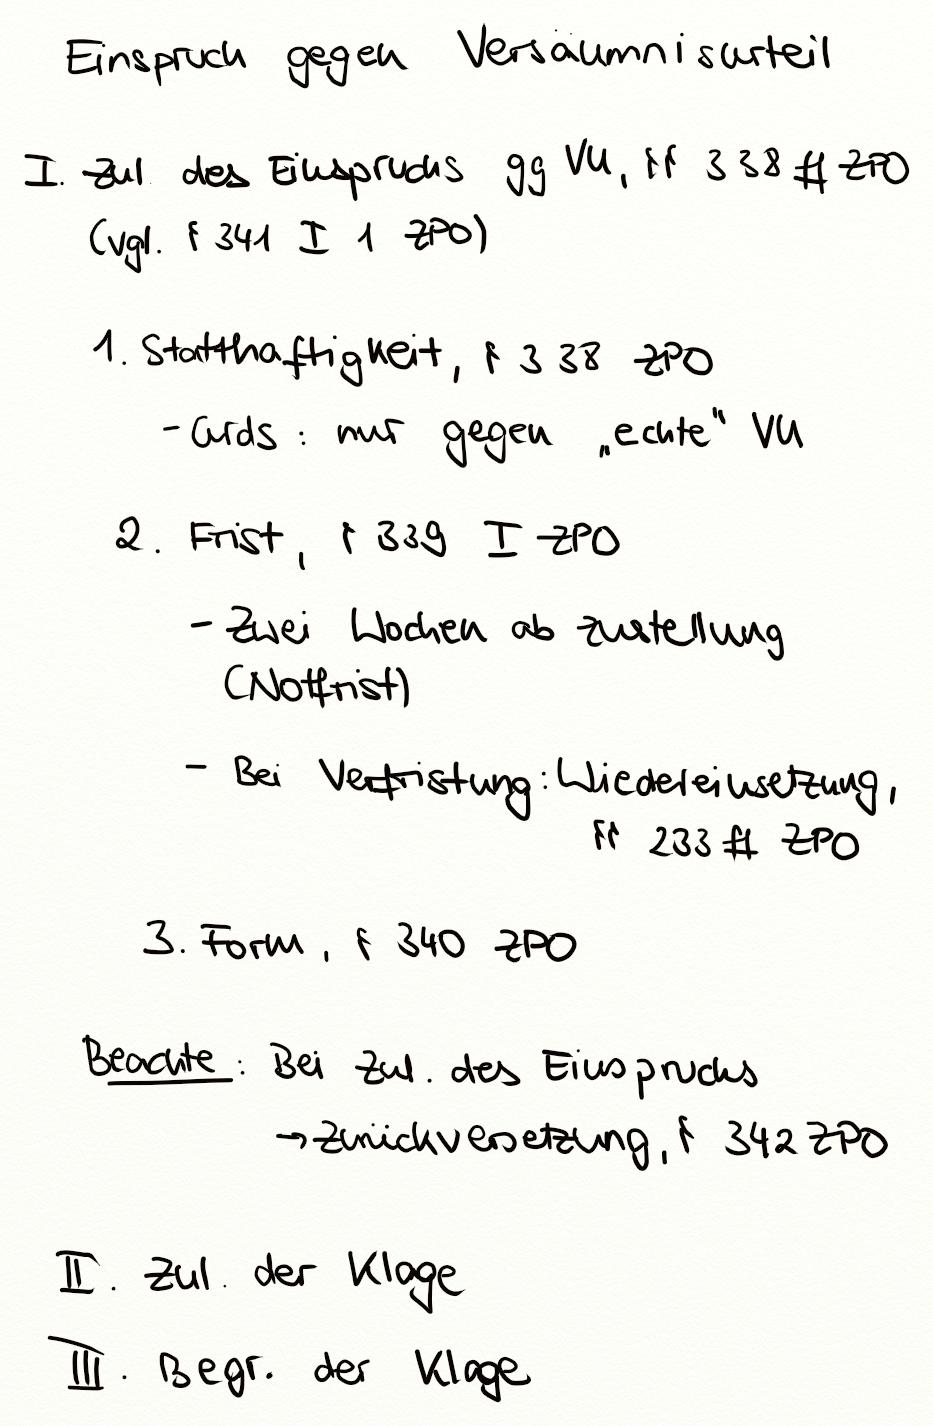 Einspruch gegen Versäumnisurteil
I. Zul. des Einspruchs gg VU, §§ 338 ff ZPO
(vgl. § 341 I 1 ZPO)
1. Statthaftigkeit, § 338 ZPO
- Grds: nur gegen „echte“ VU
2. Frist, § 339 I ZPO
- Zwei Wochen ab Zustellung
(Notfrist)
- Bei Verfristung: Wiedereinsetzung,
§§ 233 ff ZPO
3. Form, § 340 ZPO
Beachte: Bei Zul. des Einspruchs
→ Zurückversetzung, § 342 ZPO
II. Zul. der Klage
III. Begr. der Klage